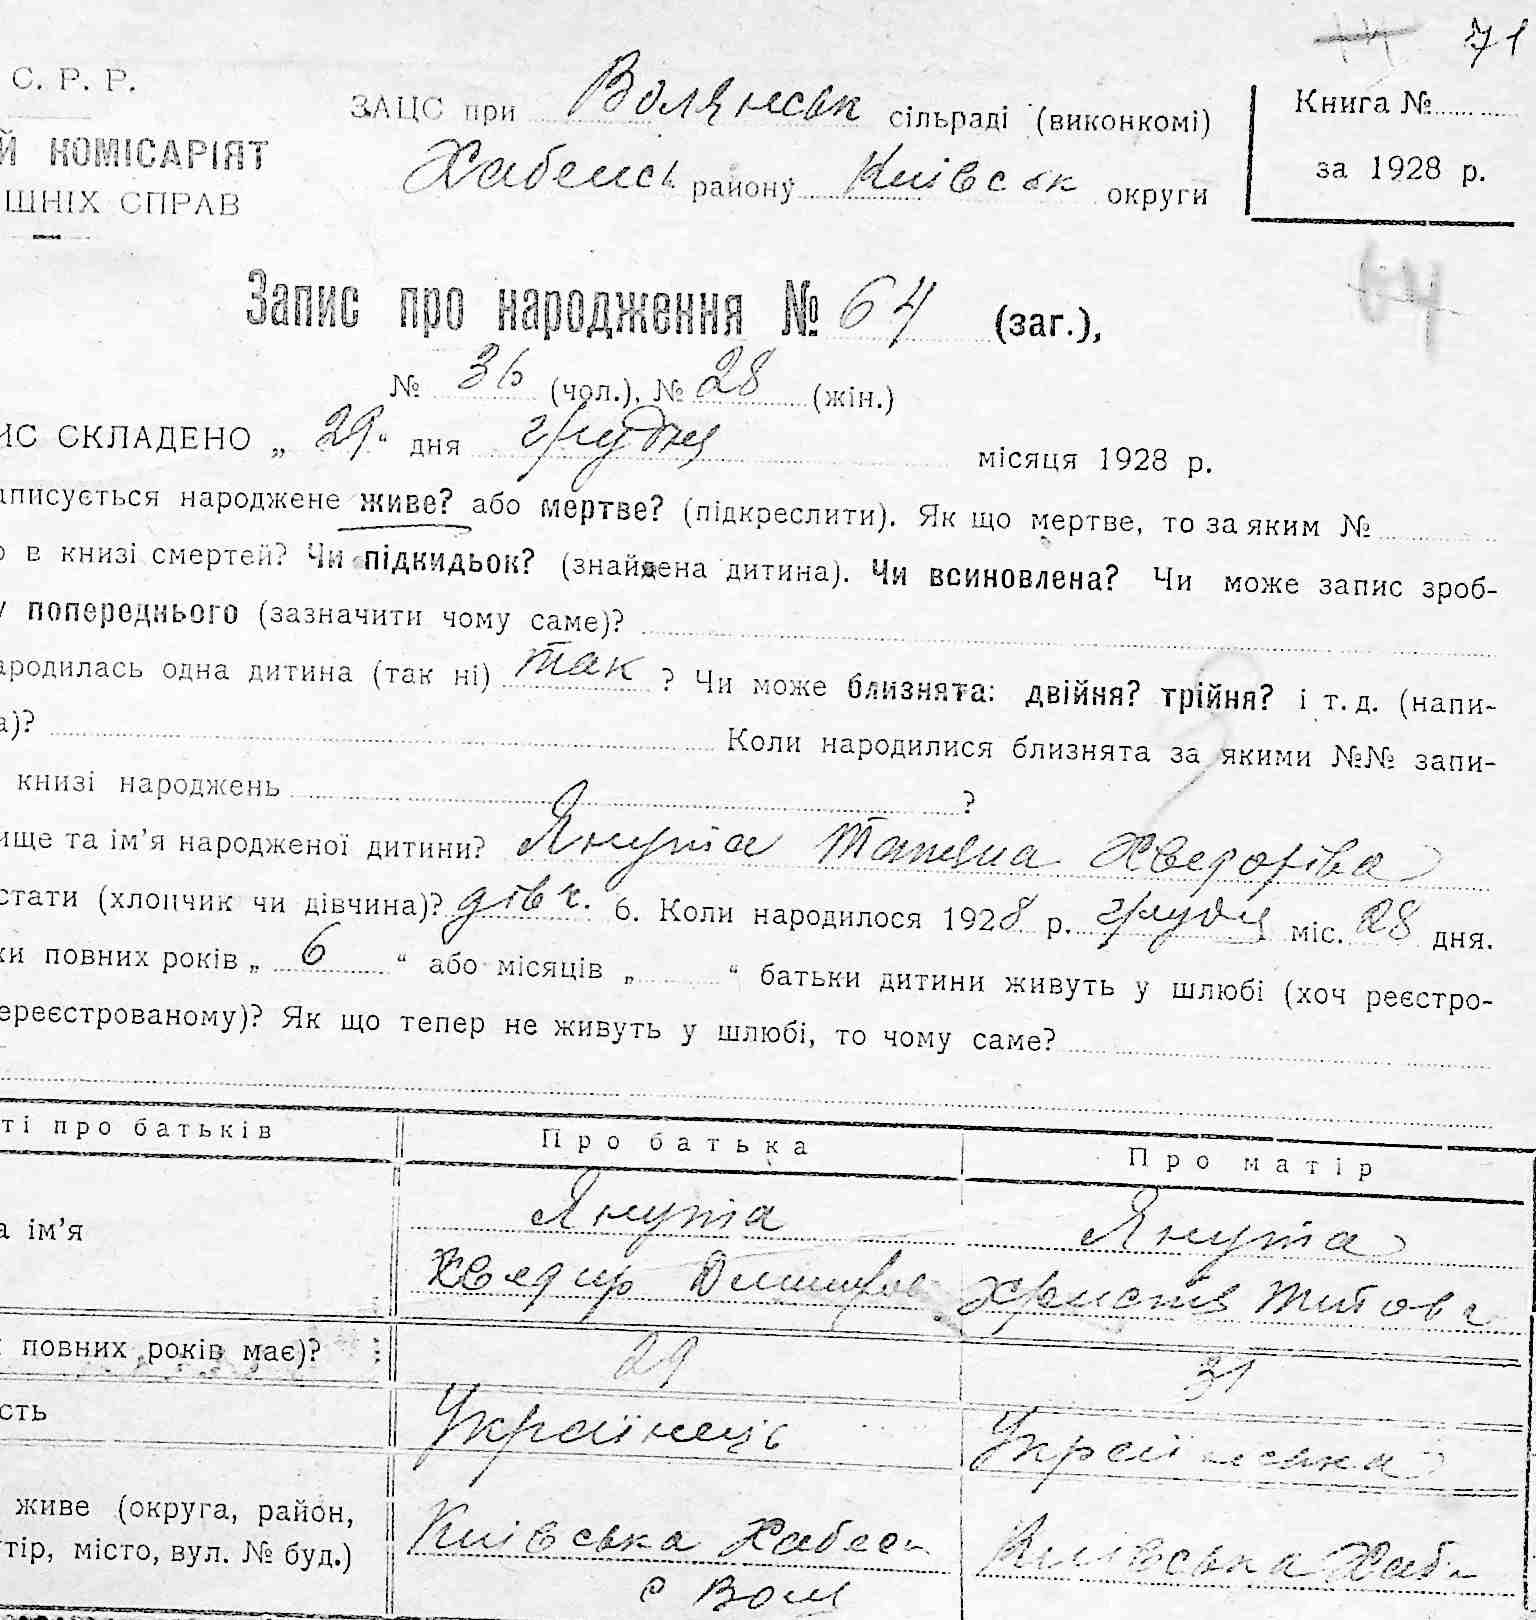 71
С. Р. Р.
ЗАЦС при Волянськ сільраді (виконкомі)
Книга №
Й КОМІСАРІЯТ
Хабенськ району Київськ округи
за 1928 р.
ШНІХ СПРАВ
64
Запис про народження № 64 (заг.),
№ 36 (чол.), № 28 (жін.)
ИС СКЛАДЕНО „ 29 “ дня грудня місяця 1928 р.
аписується народжене живе? або мертве? (підкреслити). Як що мертве, то за яким №
о в книзі смертей? Чи підкидьок? (знайдена дитина). Чи всиновлена? Чи може запис зроб-
у попереднього (зазначити чому саме)?
ародилась одна дитина (так ні) так ? Чи може близнята: двійня? трійня? і т. д. (напи-
а)? Коли народилися близнята за якими №№ запи-
книзі народжень ?
ище та ім’я народженої дитини? Янута Татяна Хведорівна
стати (хлопчик чи дівчина)? дівч. 6. Коли народилося 1928 р. грудня міс. 28 дня.
ки повних років „ 6 “ або місяців „ “ батьки дитини живуть у шлюбі (хоч реєстро-
ереєстрованому)? Як що тепер не живуть у шлюбі, то чому саме?
ті про батьків
Про батька
Про матір
а ім’я
Янута
Янута
Хведир
Христя Титова
повних років має)?
29
31
сть
Українець
Українська
живе (округа, район,
тір, місто, вул. № буд.)
Київська Хабен
Київська Хаб
с Вол